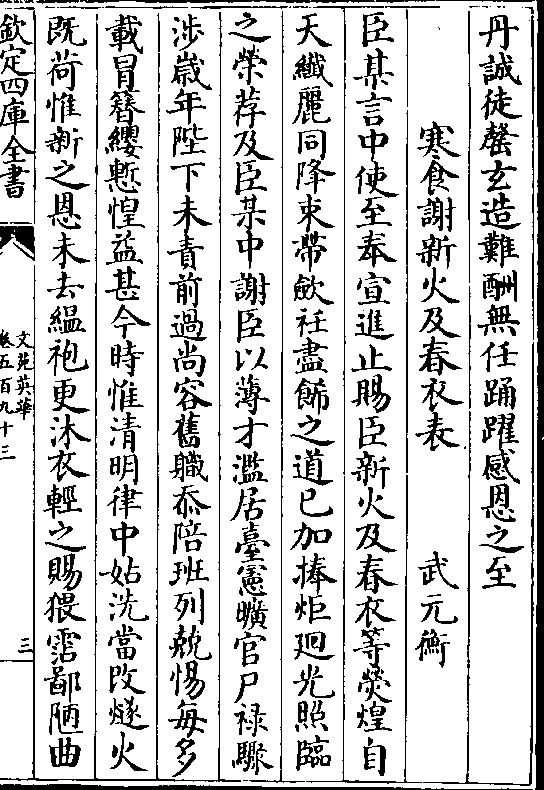 丹誠徒罄玄造難酬無任踊躍感恩之至
寒食謝新火及春衣表 武元衡
臣某言中使至奉宣進止賜臣新火及春衣等熒煌自
天纖麗同降束帶斂衽盡飾之道已加捧炬廻光照臨
之榮荐及臣某中謝臣以薄才濫居臺憲曠官尸祿驟
渉嵗年陛下未責前過尚容舊職忝陪班列兢惕每多
載冒簪纓慙惶益甚今時惟清明律中姑洗當改燧火
既荷惟新之恩未去緼袍更沐衣輕之賜猥霑鄙陋曲
欽定四庫全書
文苑英華
卷五百九十三
三